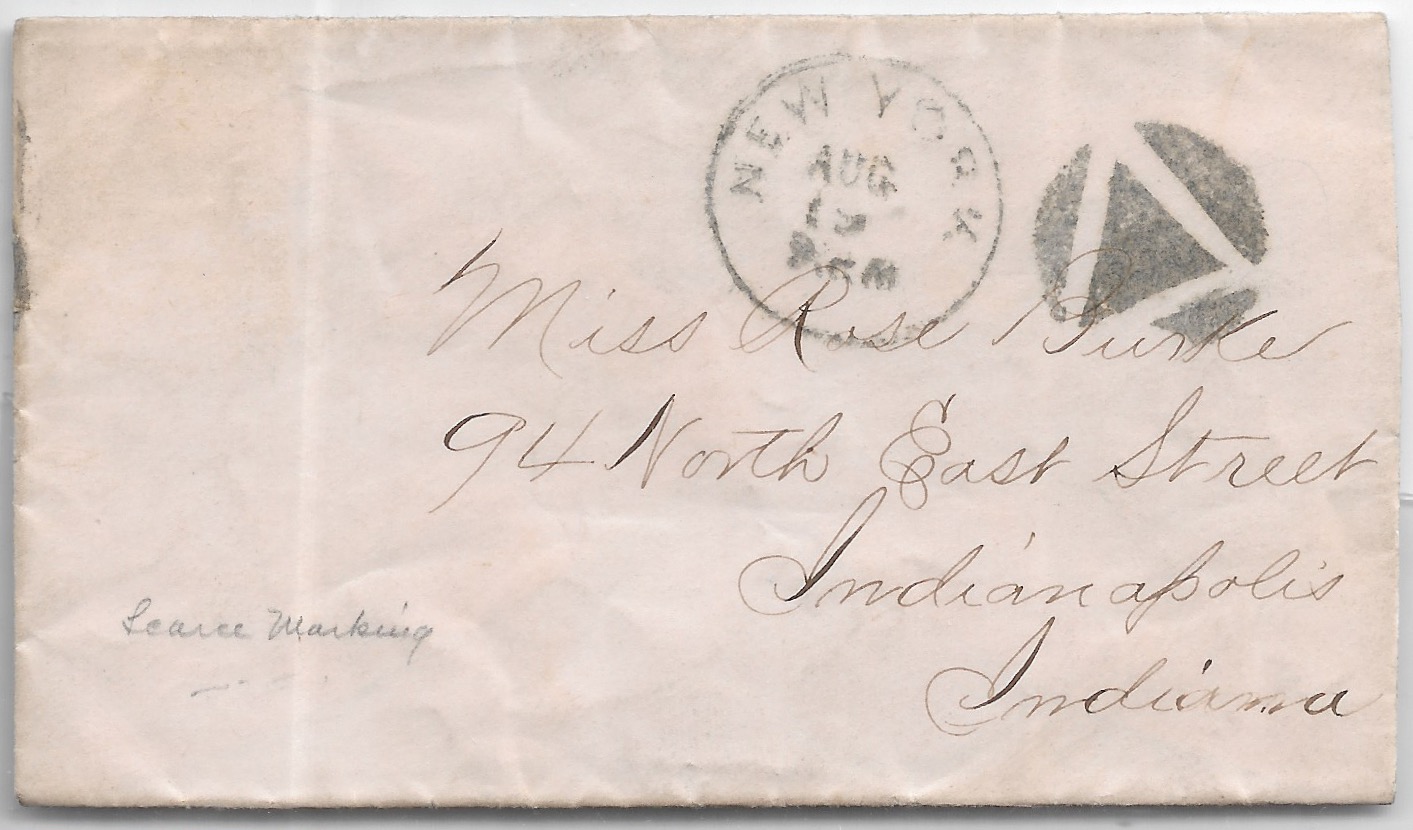 NEW YORK
AUG
Miss Rose Burke
94 North East Street
Indianapolis
Indiana
Scarce Marking